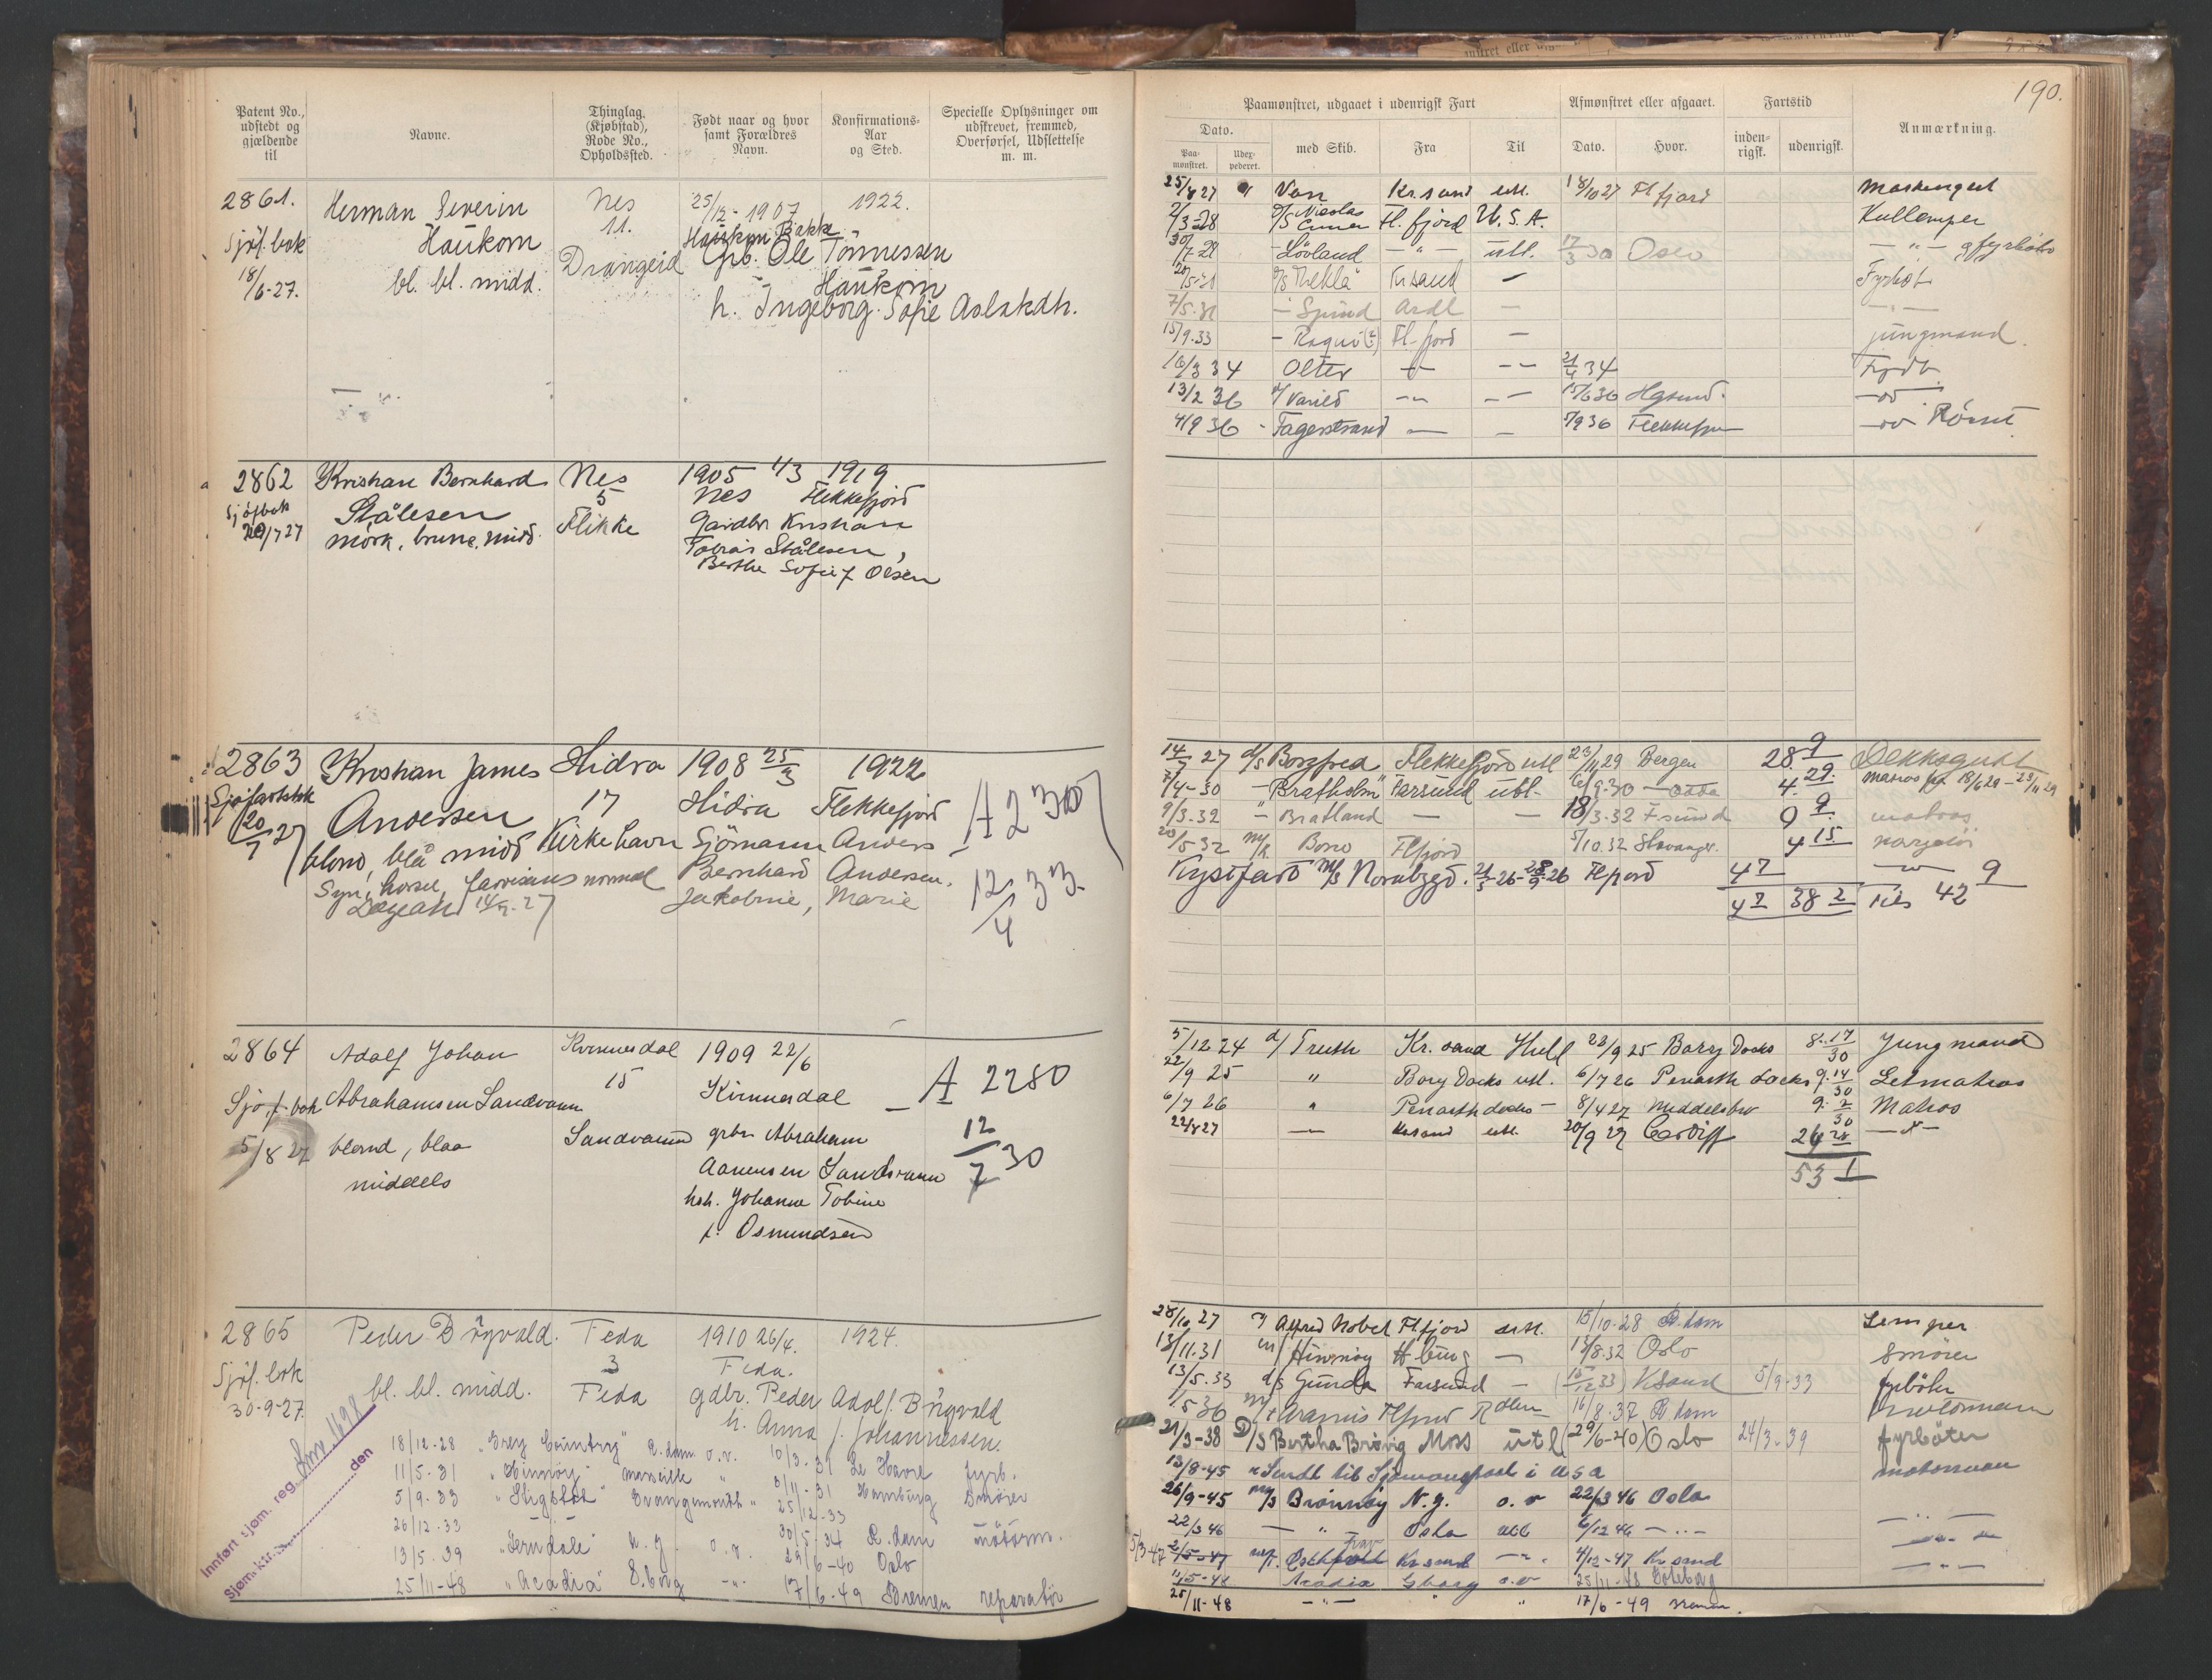 Patent No., udstedt og gjældende til
Navne.
Thinglag, (Kjøbstad), Rode No., Opholdssted.
Født naar og hvor samt Forældres Navn.
Konfirmations-Aar og Sted.
Specielle Oplysninger om udskrevet, fremmed, Overførsel, Udslettelse m. m.
2861. Herman Severin Nes 25/12-1907 1922.
Sjøf. bok Haukom 11. Haukom Bakke
18/6-27. bl. bl. midd. Drangeid Grb. Ole Tönnessen
Haukom
h. Ingeborg Sofie Aslakdh.
2862 Kristian Bernhard Nes 1905 4/3 1919
Sjöfbok Stålesen 5 Nes Flekkefjord
20/7 27 mörk, brune, midd. Flikke Gaardbr. Kristian
Tobias Stålesen,
Berthe Sofie f. Olsen
2863 Kristian James Hidra 1908 25/3 1922
Sjøfartsbok Andersen 17 Hidra Flekkefjord
20/7 27 blond, blå midd Kirkehavn Sjömann Anders
Syn, hörsel, farvesans normal Bernhard Andersen.
14/7-27 Jakobine, Marie
A 2300
12/4 33
2864 Adolf Johan Kvinesdal 1909 22/6
Sjø.f.bok Abrahamsen Sandvann 15 Kvinesdal
5/8 27 blond, blaa Sandvann grbr Abraham
middels Aanensen Sandvann
hsh. Johanne Tobine
f. Osmundsen
A 2280
12/7 30
2865 Peder Bøgvald. Feda 1910 26/4. 1924.
Sjöf. bok 3 Feda.
30-9-27. bl. bl. midd. Feda gdbr. Peder Adolf Bøgvald
h. Anna f. Johannessen.
18/12-28 "Grey County" R.dam o.v. 10/3-31 Le Havre fyrb.
11/5-31 "Hinnöy" Marseille " 3/11-31 Hamburg Smörer
5/9-33 "Stigstad" Grangemouth " 25/12-33
26/12-33 30/5-34 R.dam motorm.
13/5-39 "Ferndale" N.Y. o.v. 29/6-40 Oslo
25/11-48 "Acadia" G.borg -"- 17/6-49 Bremen reparatör
Innført sjøm. reg.
Sjøm.ktr. den
190.
Paamønstret, udgaaet i udenrigsk Fart
Afmønstret eller afgaaet.
Fartstid
Anmærkning.
Dato.
Paamønstret. Udexpederet. med Skib. Fra Til Dato. Hvor. indenrigsk. udenrigsk.
25/8 27 Van Kr.sand utl. 18/10 27 Fl.fjord Maskingut
2/3-28 D/S Fl.fjord U.S.A. Kullemper
30/7-28 - Lövland -"- utl. 17/3 30 Oslo -"- og fyrböter
D/S Thekla Kr.sand - Fyrböt
7/5.31
15/9.33 Fl.fjord - jungmand.
16/3 34 Olter 21/4 34 Fyrb.
13/2 36 Varild 15/6 36 Hgsund.
4/9 36 - Fagerstrand 7/9 36 Flekkefjord
14/7 27 d/s Borgfred Flekkefjord utl 23/11 29 Bergen 28 9 Dekksgutt
7/4-30 - Bratholm Farsund utl. 6/9.30 4. 29. matros fra 18/6 29 - 23/11 29
9/3.32 " Bratland 18/3.32 F.sund 0 9 matros
20/5 32 m/k Boro Flfjord 5/10.32 Stavanger. 4 15
Kystfart M/S Nornbygd. 21/5-26-28/9-26 Flfjord 4 7
4 7 38 2 Tils 42 9
5/12 24 d/ Truth Kr.sand Hull 22/9 25 Barry Docks 8. 17/30 Jungmand
22/9 25 " Barry Docks utl. 6/7 26 Penarth docks 9. 14/30 Letmatros
6/7 26 " Penarth docks - 8/4 27 Middelsbro 9. 2/30 Matros
22/8 27 Kr.sand utl. 20/9 29 Cardiff 24 28
53 1
28/10 27 Alfred Nobel Flfjord utl. 15/10-28 R.dam Lemper
13/11.31 m/ Hinnöy H.burg 13/8.32 Oslo Smörer
13/5.33 d/s Gunda Farsund - (15/12 33) K.sand 5/9-33 fyrböter
1/5 36 Aramis Flfjord 16/8.37 R.dam motormann
21/3-38 D/S Bertha Brövig Moss utl (29/6-40) Oslo 24/3-39 fyrböter
13/8-45 Sendt til i USA motorman
26/9-45 M/S Brönnöy N.Y. o.v 22/3 46 Oslo
22/3 46 - " - Oslo utl 6/12 46 -"-
5/3-47 2/5-47 Kr.sand 4/12-47 Kr.sand
11/5-48 Acadia Gborg o.v 25/11-48 Göteborg
25/11-48 -"- " " 17/6-49 Bremen.